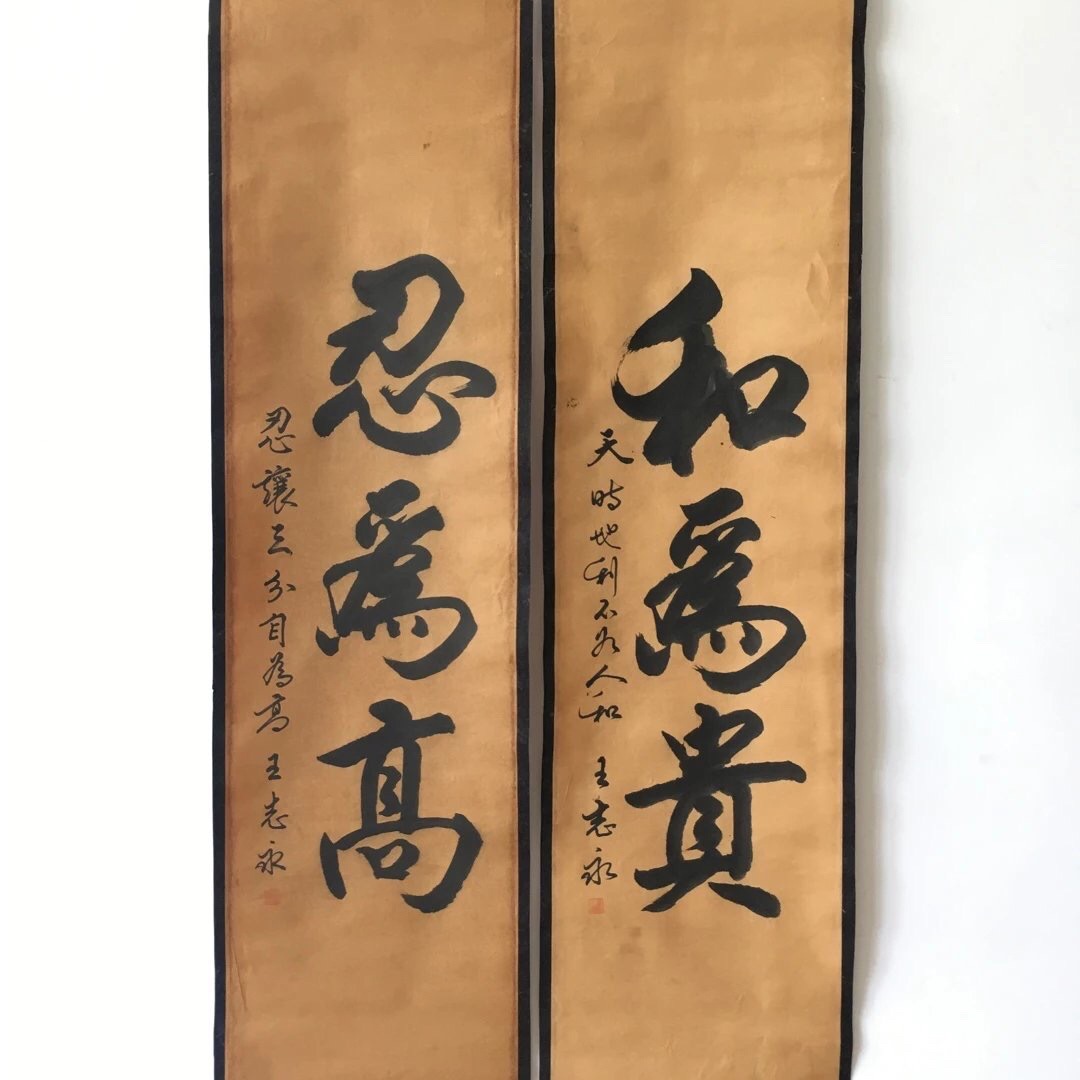 和爲貴
天時地利不如人和 王志永
忍爲高
忍讓三分自為高 王志永